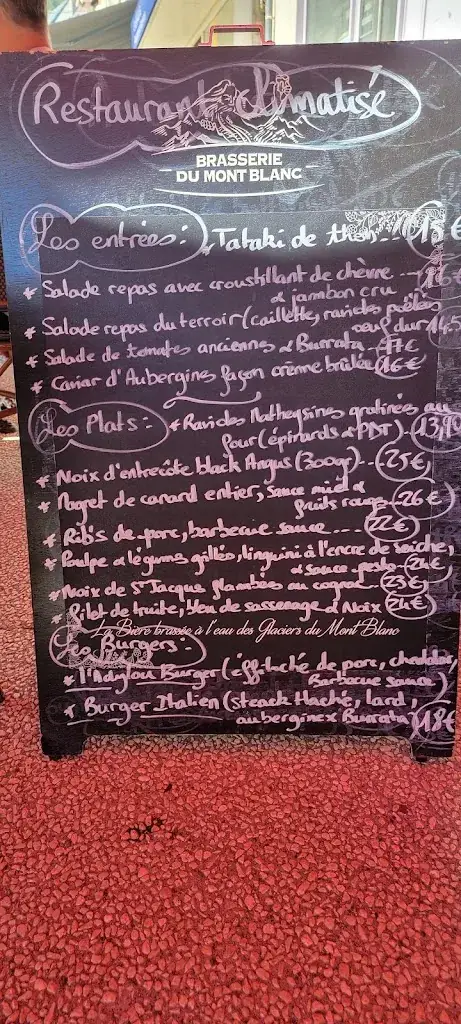 Restaurant climatisé
BRASSERIE
DU MONT BLANC
Les entrées: * Tataki de thon -- 18€
* Salade repas avec croustillant de chèvre ---
& jambon cru 16€
* Salade repas du terroir (caillette, ravioles poêlées
oeuf dur 14,5
* Salade de tomates anciennes & Burrata - 17€
* Caviar d'Aubergines façon crème brûlée 16€
Les Plats: * Ravioles Matheysines gratinées au
four (épinards & PDT) - 13,90
* Noix d'entrecôte black Angus (300gr) -- 25€
* Magret de canard entier, sauce miel &
fruits rouges - 26€
* Rib's de porc, barbecue sauce ---- 22€
* Poulpe & légumes grillés, linguini à l'encre de seiche,
& sauce pesto - 24€
* Noix de St Jacques flambées au cognac 23€
* Filet de truite, bleu de sassenage & Noix 24€
La Bière brassée à l'eau des Glaciers du Mont Blanc
Les Burgers:
* Burger (éffiloché de porc, cheddar,
Barbecue sauce)
* Burger Italien (steack Haché, lard,
aubergine & Burrata) 18€